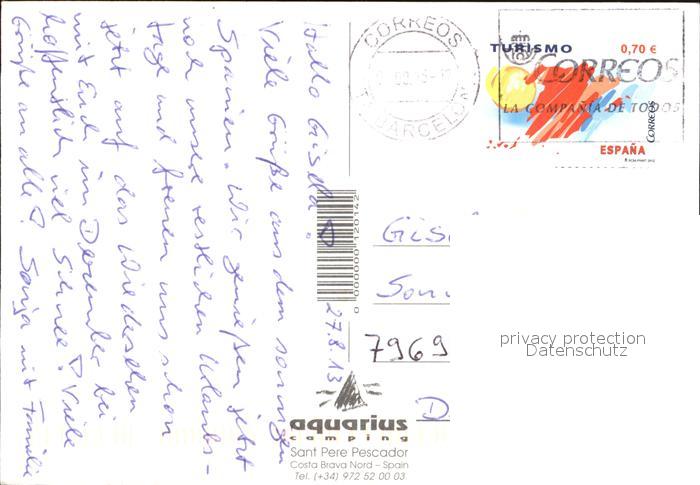 Hallo Gisela!
Viele Grüße aus dem sonnigen
Spanien. Wir genießen jetzt
noch unsere restlichen Urlaubs-
tage und freuen uns schon
jetzt auf das Wiedersehen
mit Euch im Dezember bei
hoffentlich viel Schnee! Viele
Grüße an alle! Sonja mit Familie
27.8.13
0 000000 120142
CORREOS
BARCELON
TURISMO 0,70 €
CORREOS
LA COMPAÑÍA DE TODOS
CORREOS
ESPAÑA
Gis
Son
7969
D
privacy protection
Datenschutz
aquarius
camping
Sant Pere Pescador
Costa Brava Nord – Spain
Tel. (+34) 972 52 00 03